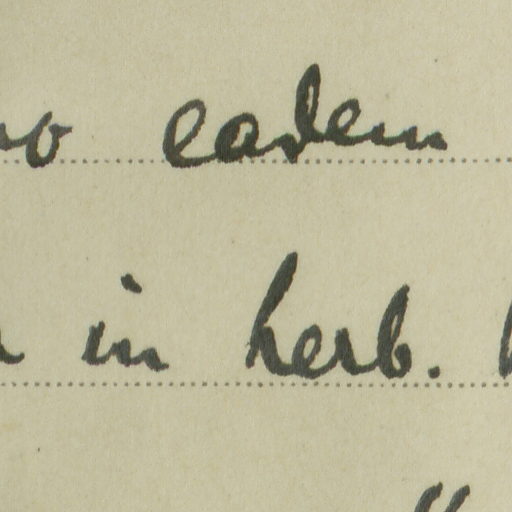 eadem
in herb.